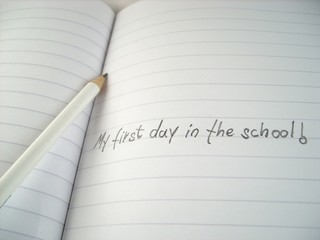 My first day in the school!